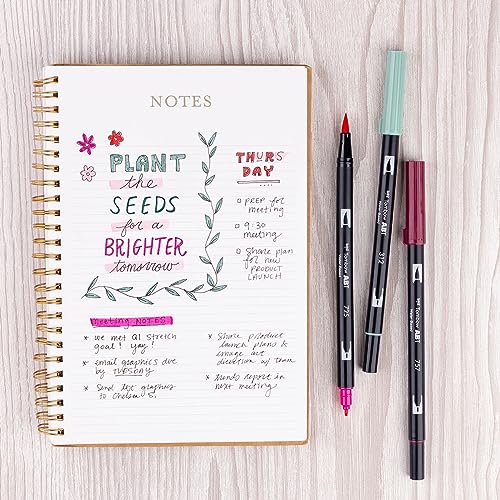 NOTES
PLANT
the
SEEDS
for a
BRIGHTER
tomorrow
THURS
DAY
PREP for
meeting
9:30
meeting
Share plan
for new
PRODUCT
LAUNCH
Meeting NOTES
* we met Q1 stretch
goal! yay!
* email graphics due
by TUESDAY
* Send last graphics
to Chelsea S.
* Share product
launch plans &
image art
direction w/ team
* Send report in
next meeting
Tombow ABT
725
Tombow ABT
312
Tombow ABT
757